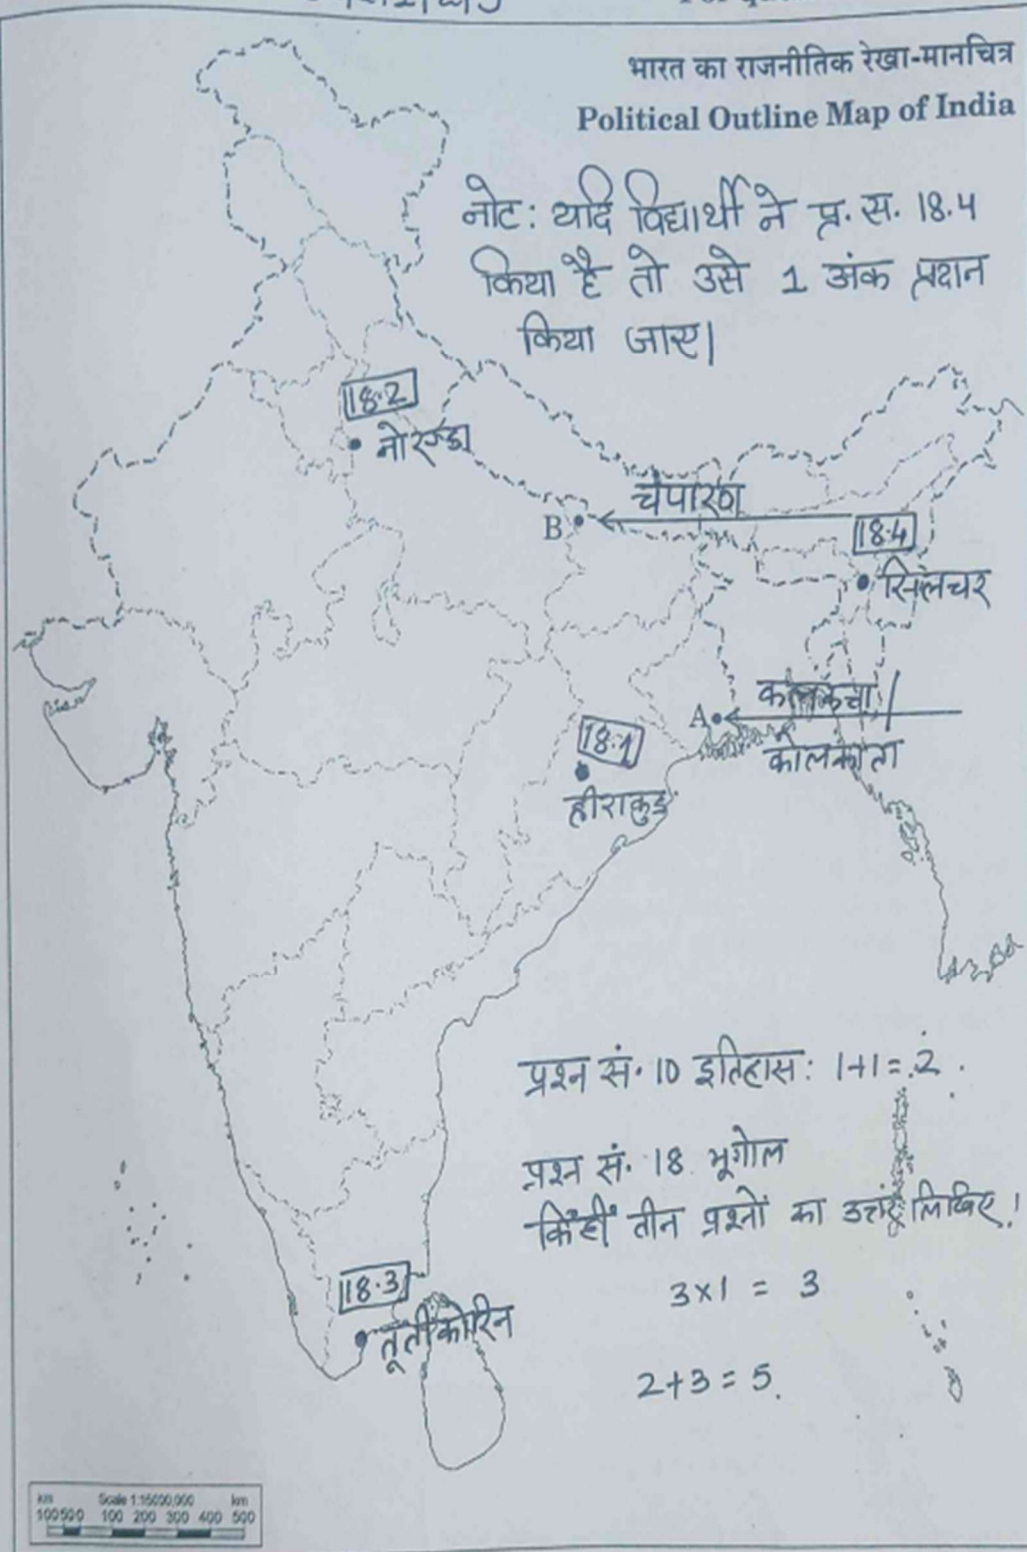 भारत का राजनीतिक रेखा-मानचित्र
Political Outline Map of India
नोट: यदि विद्यार्थी ने प्र. स. 18.4
किया है तो उसे 1 अंक प्रदान
किया जाए।
18.2
नोएडा
चंपारण
B
18.4
सिलचर
A
कोलकाता
18.1
हीराकुड
प्रश्न सं. 10 इतिहास: 1+1=2
प्रश्न सं. 18 भूगोल
किंही तीन प्रश्नों का उत्तर लिखिए!
3×1 = 3
18.3
तूतीकोरिन
2+3=5.
km Scale 1:15000,000 km
100 50 0 100 200 300 400 500